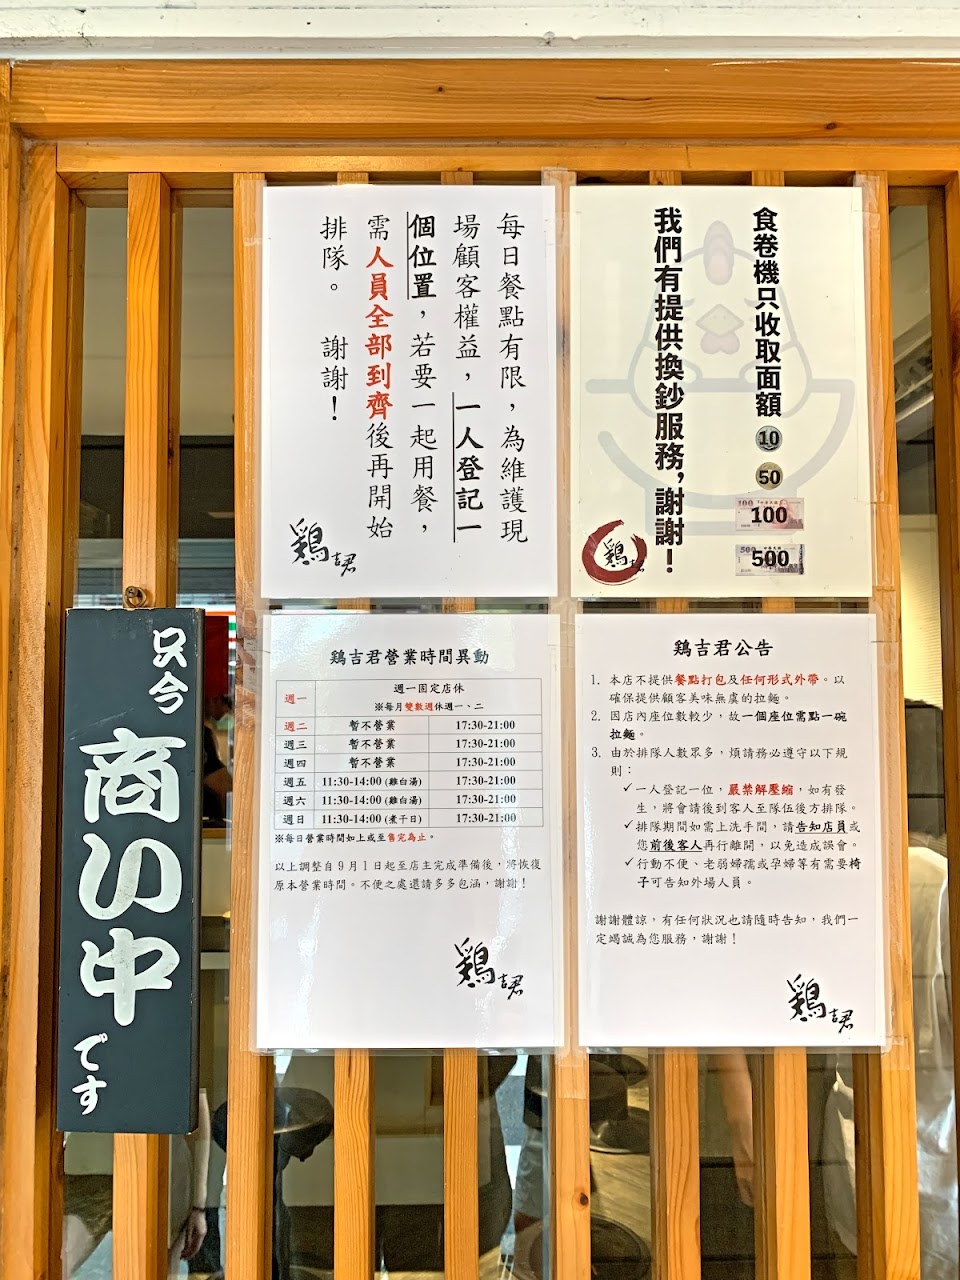 每日餐點有限，為維護現
場顧客權益，一人登記一
個位置，若要一起用餐，
需人員全部到齊後再開始
排隊。 謝謝！
鶏吉君
食卷機只收取面額
10
50
100
500
我們有提供換鈔服務，謝謝！
鶏吉君
只今
商い中
です
鶏吉君營業時間異動
週一 週一固定店休
※每月雙數週休週一、二
週二 暫不營業 17:30-21:00
週三 暫不營業 17:30-21:00
週四 暫不營業 17:30-21:00
週五 11:30-14:00 (雞白湯) 17:30-21:00
週六 11:30-14:00 (雞白湯) 17:30-21:00
週日 11:30-14:00 (煮干日) 17:30-21:00
※每日營業時間如上或至售完為止。
以上調整自９月１日起至店主完成準備後，將恢復
原本營業時間。不便之處還請多多包涵，謝謝！
鶏吉君
鶏吉君公告
1. 本店不提供餐點打包及任何形式外帶。以
確保提供顧客美味無虞的拉麵。
2. 因店內座位數較少，故一個座位需點一碗
拉麵。
3. 由於排隊人數眾多，煩請務必遵守以下規
則：
✓一人登記一位，嚴禁解壓縮，如有發
生，將會請後到客人至隊伍後方排隊。
✓排隊期間如需上洗手間，請告知店員或
您前後客人再行離開，以免造成誤會。
✓行動不便、老弱婦孺或孕婦等有需要椅
子可告知外場人員。
謝謝體諒，有任何狀況也請隨時告知，我們一
定竭誠為您服務，謝謝！
鶏吉君